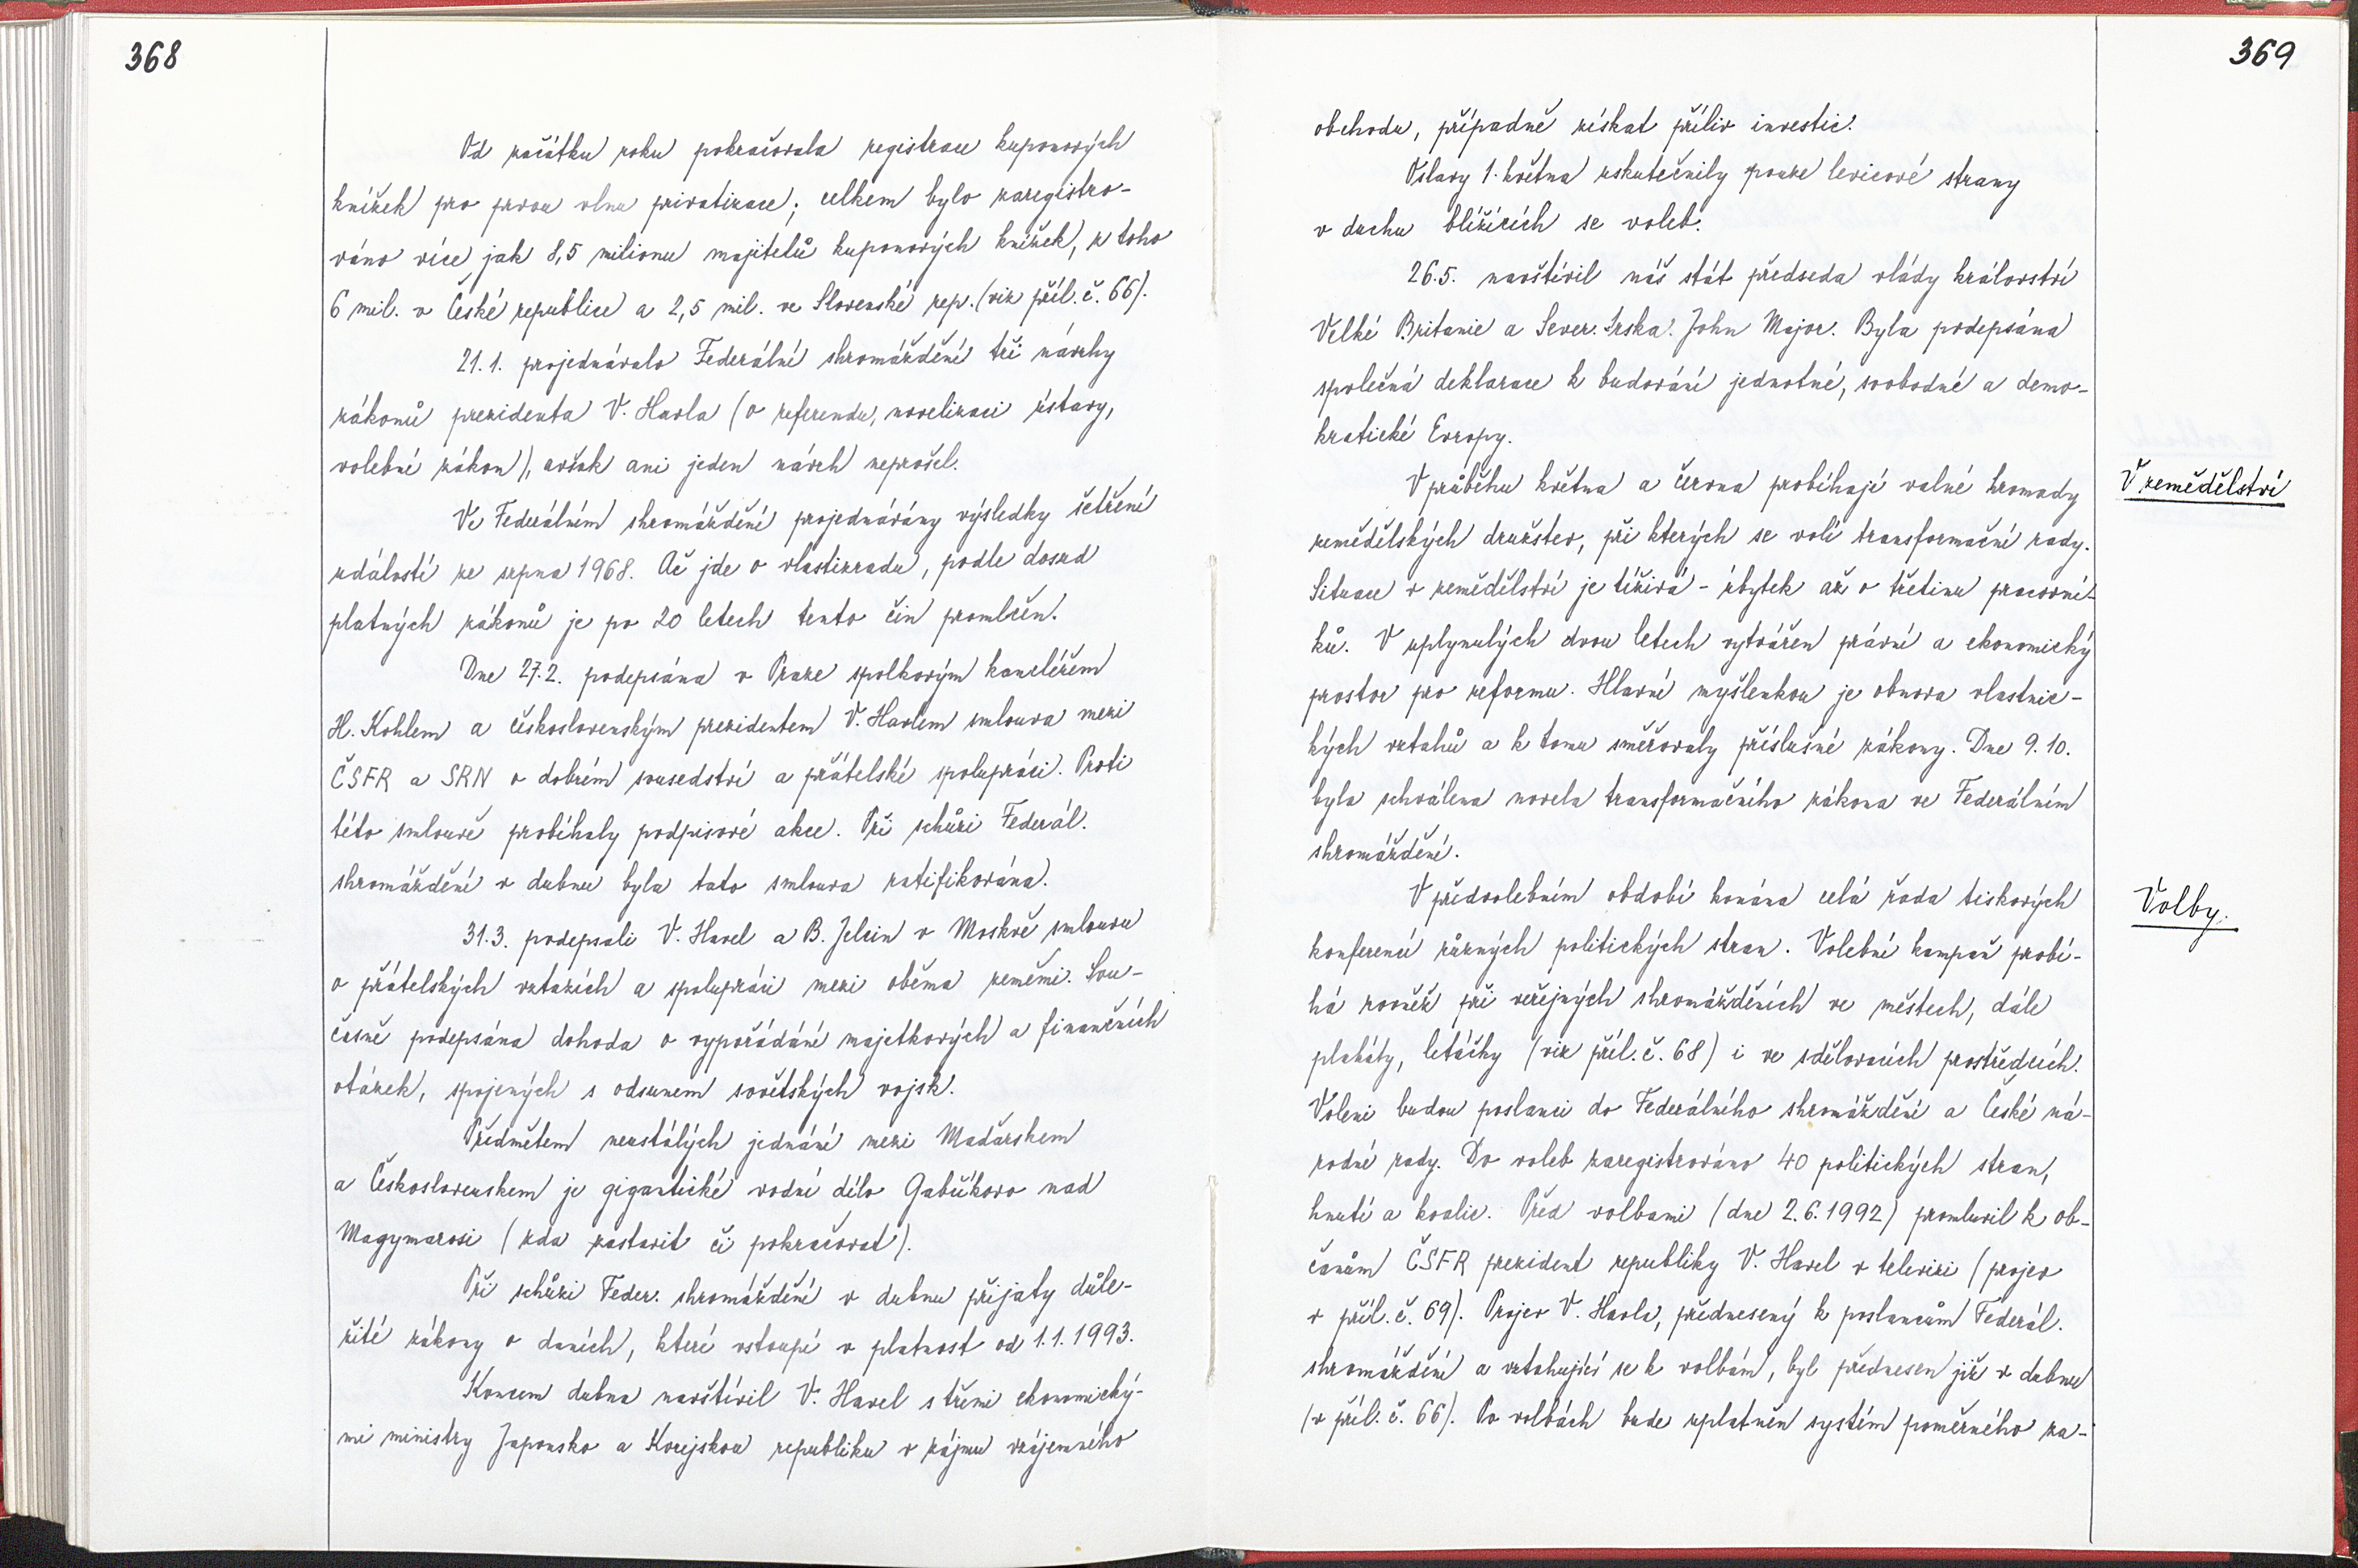 368
Od začátku roku pokračovala registrace kuponových
knížek pro prvou vlnu privatizace; celkem bylo zaregistro-
váno více jak 8,5 milionu majitelů kuponových knížek, z toho
6 mil. v České republice a 2,5 mil. ve Slovenské rep. (viz příl. č. 66).
21.1. projednávalo Federální shromáždění tři návrhy
zákonů prezidenta V. Havla (o referendu, novelizaci ústavy,
volební zákon), avšak ani jeden návrh neprošel.
Ve Federálním shromáždění projednávány výsledky šetření
událostí ze srpna 1968. Ač jde o vlastizradu, podle dosud
platných zákonů je po 20 letech tento čin promlčen.
Dne 27.2. podepsána v Praze spolkovým kancléřem
H. Kohlem a československým prezidentem V. Havlem smlouva mezi
ČSFR a SRN o dobrém sousedství a přátelské spolupráci. Proti
této smlouvě probíhaly podpisové akce. Při schůzi Federál.
shromáždění v dubnu byla tato smlouva ratifikována.
31.3. podepsali V. Havel a B. Jelcin v Moskvě smlouvu
o přátelských vztazích a spolupráci mezi oběma zeměmi. Sou-
časně podepsána dohoda o vypořádání majetkových a finančních
otázek, spojených s odsunem sovětských vojsk.
Předmětem neustálých jednání mezi Maďarskem
a Československem je gigantické vodní dílo Gabčíkovo nad
Magymarosi (zda zastavit či pokračovat).
Při schůzi Feder. shromáždění v dubnu přijaty důle-
žité zákony o daních, které vstoupí v platnost od 1.1.1993.
Koncem dubna navštívil V. Havel s třemi ekonomický-
mi ministry Japonsko a Korejskou republiku v zájmu vzájemného
369
obchodu, případně získat příliv investic.
Oslavy 1. května uskutečnily pouze levicové strany
v duchu blížících se voleb.
26.5. navštívil náš stát předseda vlády království
Velké Britanie a Sever. Irska. John Major. Byla podepsána
společná deklarace k budování jednotné, svobodné a demo-
kratické Evropy.
V zemědělství
V průběhu května a června probíhají valné hromady
zemědělských družstev, při kterých se volí transformační rady.
Situace v zemědělství je tíživá - úbytek až o třetinu pracovní-
ků. V uplynulých dvou letech vytvářen právní a ekonomický
prostor pro reformu. Hlavní myšlenkou je obnova vlastnic-
kých vztahů a k tomu směřovaly příslušné zákony. Dne 9.10.
byla schválena novela transformačního zákona ve Federálním
shromáždění.
Volby.
V předvolebním období konána celá řada tiskových
konferencí různých politických stran. Volební kampaň probí-
há rovněž při veřejných shromážděních ve městech, dále
plakáty, letáčky (viz příl. č. 68) i ve sdělovacích prostředcích.
Voleni budou poslanci do Federálního shromáždění a České ná-
rodní rady. Do voleb zaregistrováno 40 politických stran,
hnutí a koalic. Před volbami (dne 2.6.1992) promluvil k ob-
čanům ČSFR prezident republiky V. Havel v televizi (projev
v příl. č. 69). Projev V. Havla, přednesený k poslancům Federál.
shromáždění a vztahující se k volbám, byl přednesen již v dubnu
(v příl. č. 66). Po volbách bude uplatněn systém poměrného za-